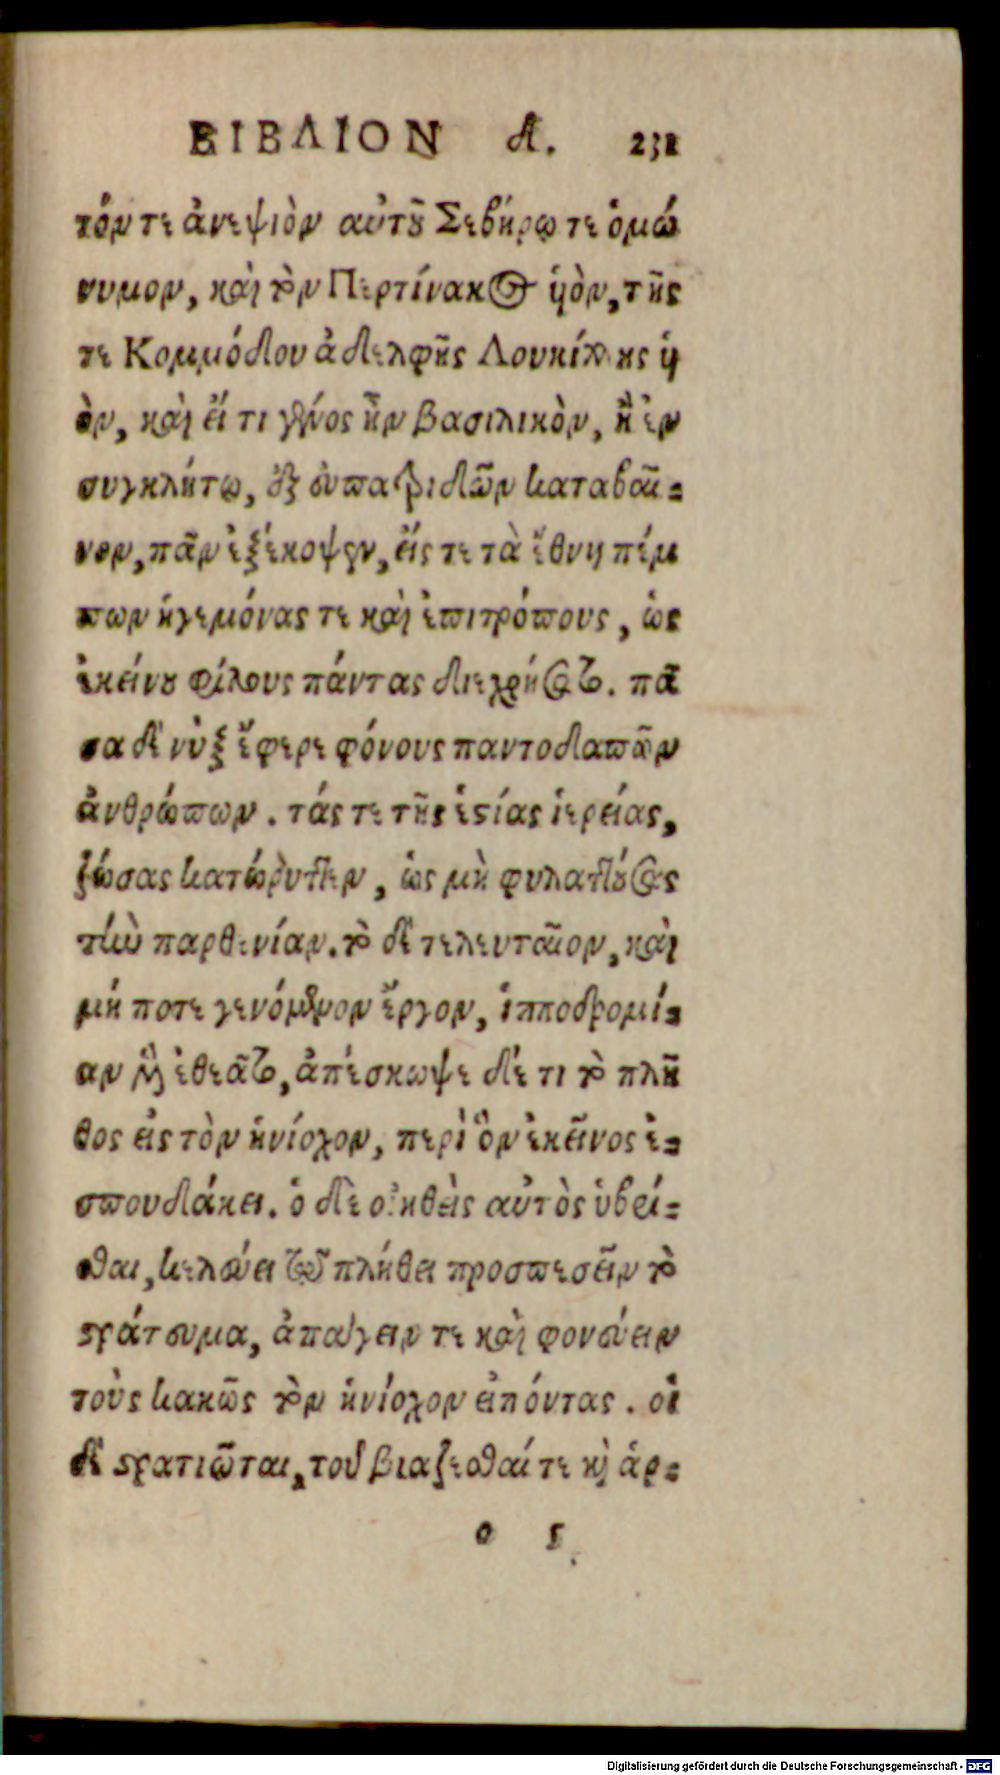 ΒΙΒΛΙΟΝ Δ. 231
τόν τε ἀνεψιὸν αὐτοῦ Σεβήρῳ τε ὁμώ
νυμον, καὶ τὸν Περτίνακος ὑὸν, τῆς
τε Κομμόδου ἀδελφῆς Λουκίλλης ὑ
ὸν, καὶ εἴ τι γένος ἦν βασιλικὸν, ἢ ἐν
συγκλήτῳ, ἐξ εὐπατριδῶν καταβαῖ-
νον, πᾶν ἐξέκοψεν, εἴς τε τὰ ἔθνη πέμ
πων ἡγεμόνας τε καὶ ἐπιτρόπους, ὡς
ἐκείνου φίλους πάντας διεχρήσατο. πᾶ
σα δὲ νὺξ ἔφερε φόνους παντοδαπῶν
ἀνθρώπων. τάς τε τῆς ἑστίας ἱερείας,
ζώσας κατώρυττεν, ὡς μὴ φυλαττούσας
τὴν παρθενίαν. τὸ δὲ τελευταῖον, καὶ
μή ποτε γενόμενον ἔργον, ἱπποδρομί-
αν μὲν ἐθεᾶτο, ἀπέσκωψε δέ τι τὸ πλῆ
θος εἰς τὸν ἡνίοχον, περὶ ὃν ἐκεῖνος ἐ-
σπουδάκει. ὁ δὲ οἰηθεὶς αὐτὸς ὑβρί-
σθαι, κελεύει τῷ πλήθει προσπεσεῖν τὸ
στράτευμα, ἀπάγειν τε καὶ φονεύειν
τοὺς κακῶς τὸν ἡνίοχον εἰπόντας. οἱ
δὲ στρατιῶται, τοῦ βιάζεσθαί τε καὶ ἁρ-
ο 5
Digitalisierung gefördert durch die Deutsche Forschungsgemeinschaft - DFG